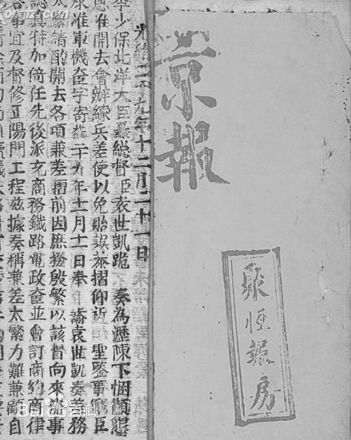 京報
聚恒報房
光緒二十九年十二月二十一日
少保北洋大臣直隸總督臣袁世凱跪 奏為瀝陳下悃顒懇
恩准開去會辦練兵差使以免貽誤恭摺仰祈 聖鑒事竊臣
承准軍機處字寄二十九年十一月十一日奉 諭袁世凱奏差務
太繁請酌開去各項兼差摺前因庶務殷繁以該督向來遇事
認真特加倚任先後派充商務鐵路電政並會訂商約商律
事宜及督修正陽門工程茲據奏稱兼差太繁力難兼顧自